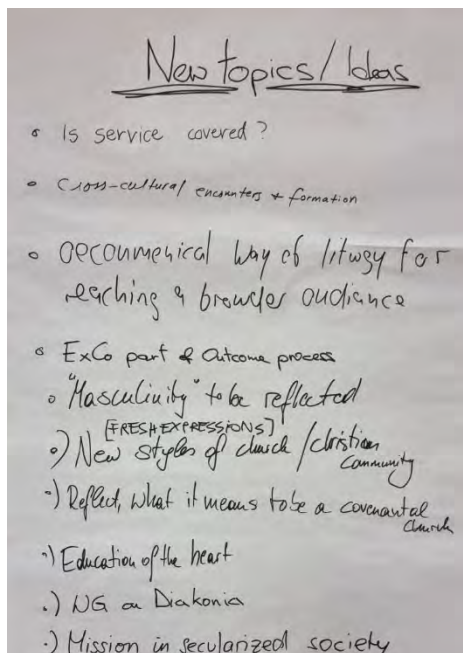 New topics/Ideas
• Is service covered?
• Cross-cultural encounters + formation
• oeconmenical way of liturgy for
reaching a browder audiance
• ExCo part of Outcome process
• "Masculinity" to be reflected
[FRESH EXPRESSIONS]
•) New styles of church / christian
community
•) Reflect, what it means to be a covenantal
church
•) Education of the heart
•) WG on Diakonia
•) Mission in secularized society